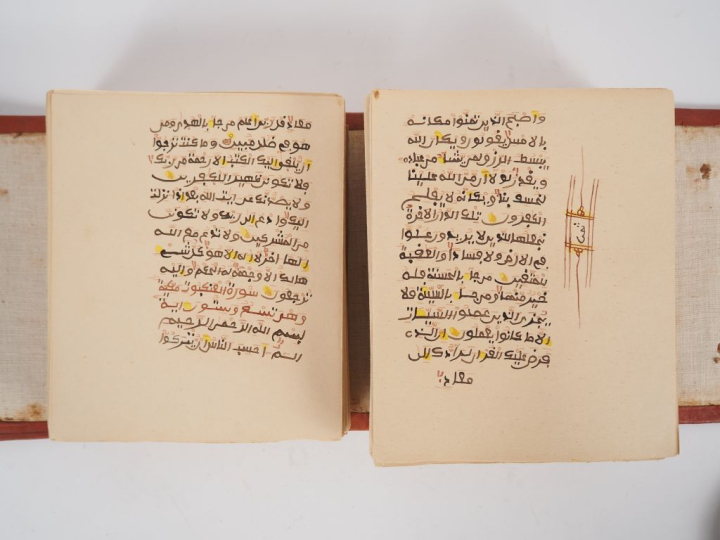 واصبح الذين تمنوا مكانه
بالامس يقولون ويكان الله
يبسط الرزق لمن يشا من عباده
ويقدر لولا ان من الله علينا
لخسف بنا ويكانه لا يفلح
الكفرون تلك الدار الاخرة
نجعلها للذين لا يريدون علوا
في الارض ولا فسادا والعقبة
للمتقين من جا بالحسنة فله
خير منها ومن جا بالسيئة فلا
يجزى الذين عملوا السيئات
الا ما كانوا يعملون ان الذي
فرض عليك القران لرادك الى
معاد
ثمن
معاد قل ربي اعلم من جا بالهدى ومن
هو في ضلل مبين وما كنت ترجوا
ان يلقى اليك الكتب الا رحمة من ربك
فلا تكونن ظهيرا للكفرين
ولا يصدنك عن ايت الله بعد اذ انزلت
اليك وادع الى ربك ولا تكونن
من المشركين ولا تدع مع الله
الها اخر لا اله الا هو كل شي
هالك الا وجهه له الحكم واليه
ترجعون سورة العنكبوت مكية
وهي تسع وستون اية
بسم الله الرحمن الرحيم
الم احسب الناس ان يتركوا